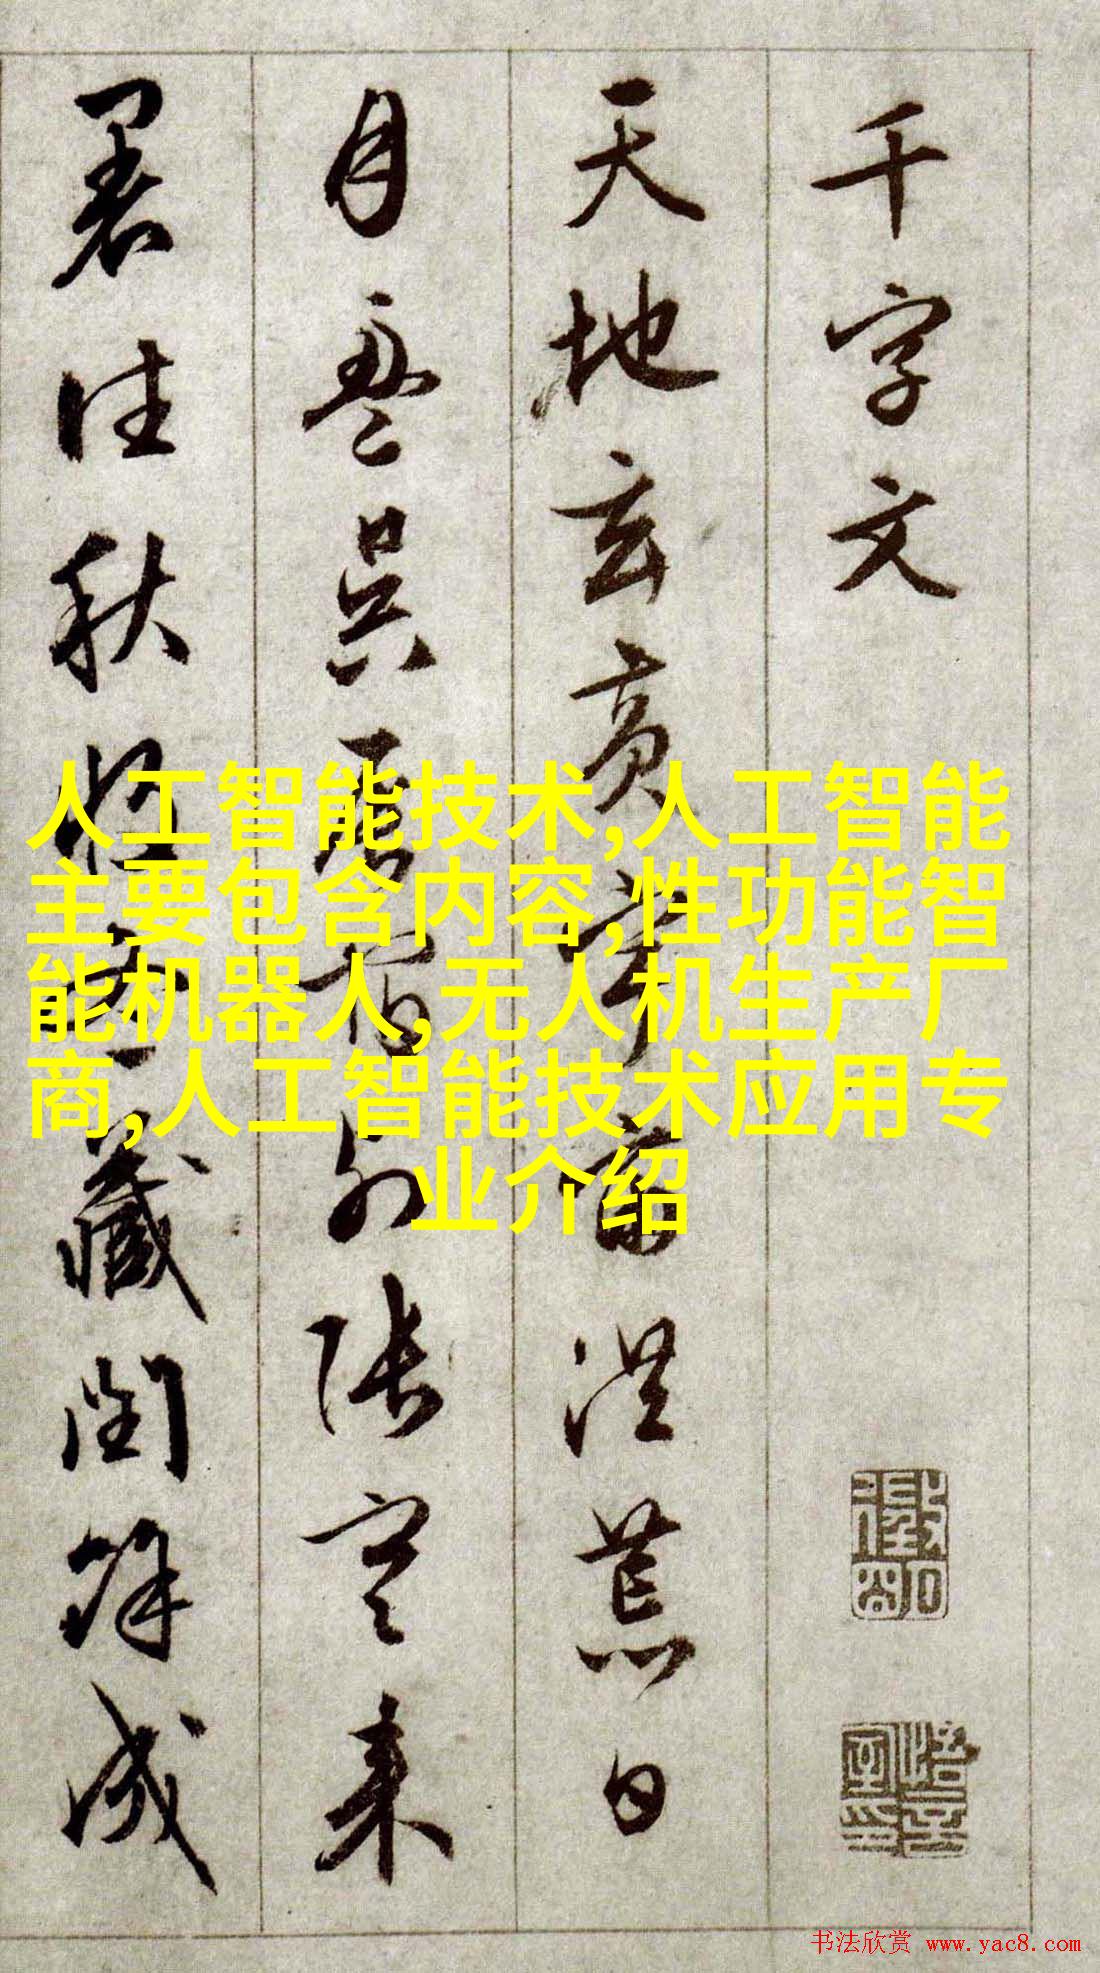 千字文
天地玄黄宇宙洪荒日
月盈昃辰宿列张寒来
暑往秋收冬藏闰余成
人工智能技术,人工智能
主要包含内容,性功能智
能机器人,无人机生产厂
商,人工智能技术应用专
业介绍
书法欣赏 www.yac8.com